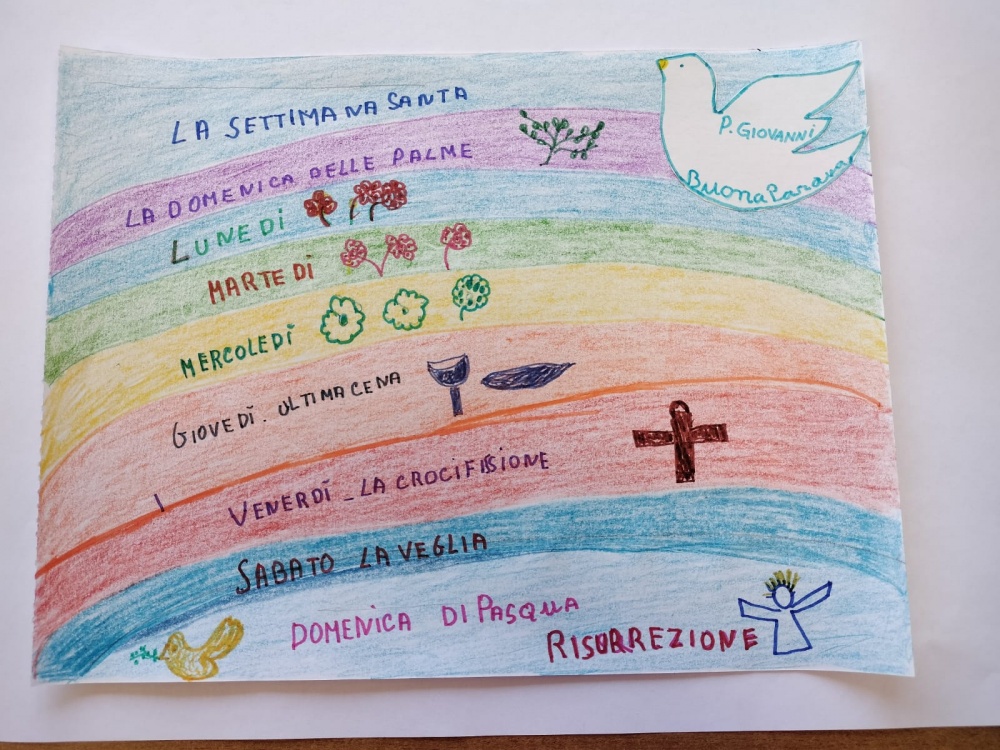 LA SETTIMANA SANTA
P. GIOVANNI
Buona Pasqua
LA DOMENICA DELLE PALME
LUNEDÌ
MARTEDÌ
MERCOLEDÌ
GIOVEDÌ. ULTIMA CENA
VENERDÌ - LA CROCIFISSIONE
SABATO LA VEGLIA
DOMENICA DI PASQUA
RISURREZIONE